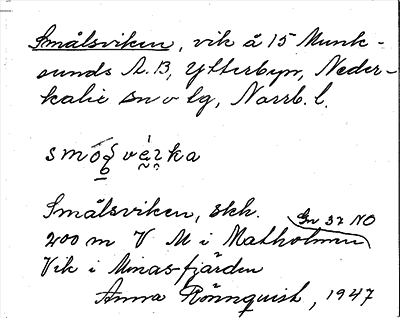 Smålsviken, vik å 15 Munk-
sunds A. 13, Ytterbyn, Neder-
kalix sn o lg, Norrb. l.
Smålsviken, skk.
Gn 37 NO
200 m V M i Matholmen
Vik i Minas-fjärden
Anna Rönnquist, 1947